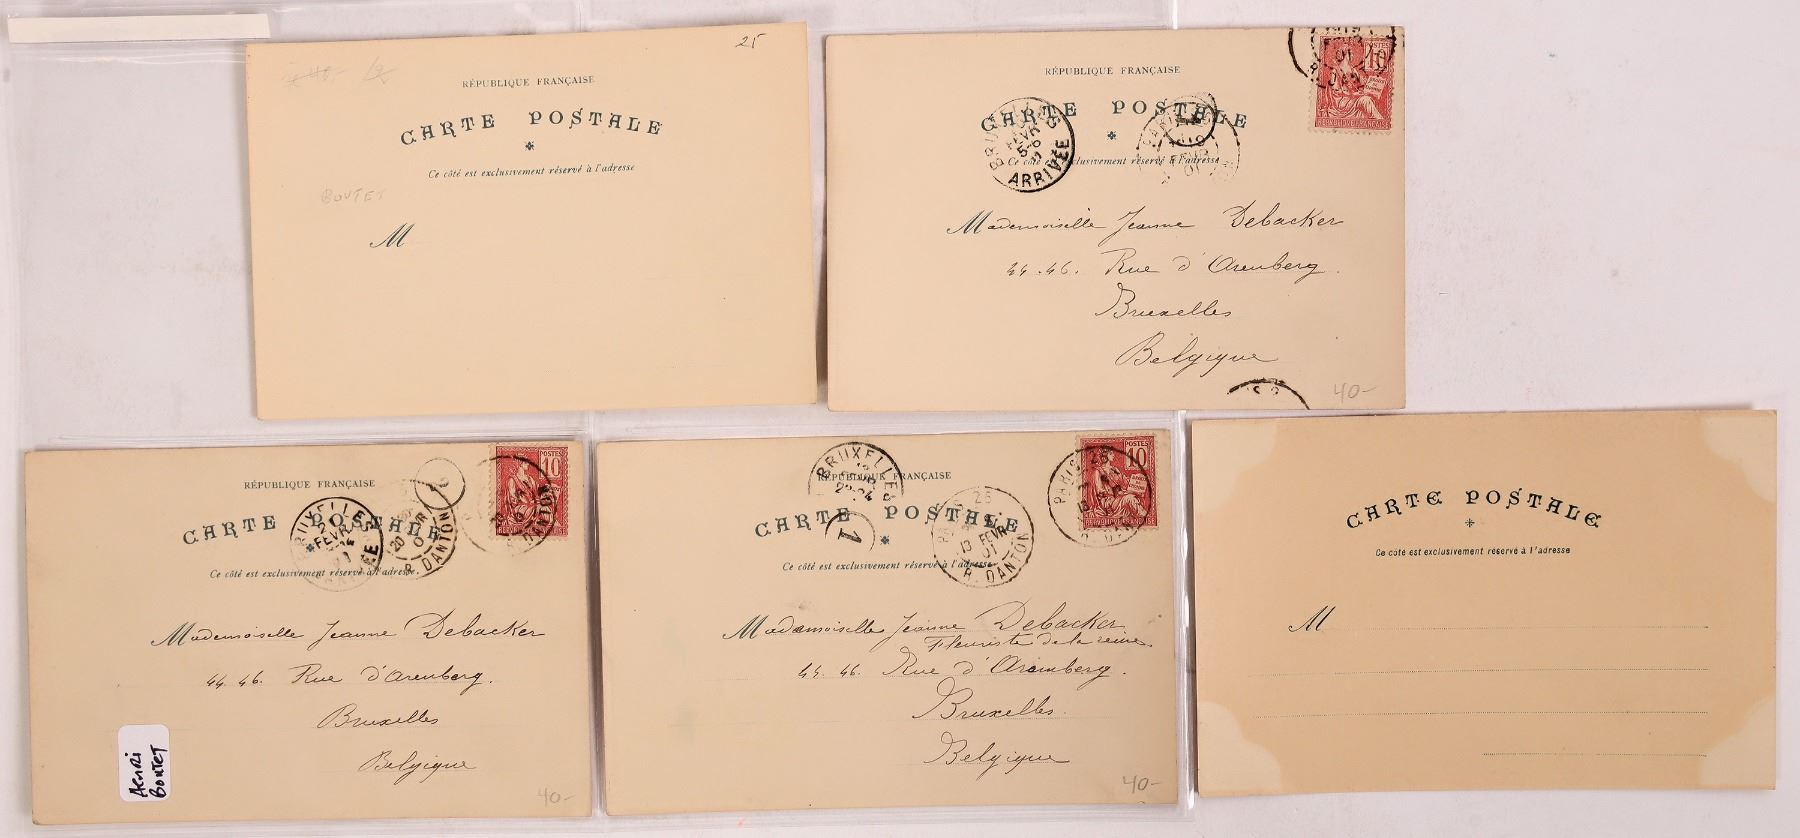 25
RÉPUBLIQUE FRANÇAISE
CARTE POSTALE
Ce côté est exclusivement réservé à l'adresse
BOUTET
M
RÉPUBLIQUE FRANÇAISE
CARTE POSTALE
Ce côté est exclusivement réservé à l'adresse
BRUXELLES
ARRIVÉE
POSTES
10
RÉPUBLIQUE FRANÇAISE
Mademoiselle Jeanne Debacker
44.46. Rue d'Arenberg.
Bruxelles
Belgique
40-
RÉPUBLIQUE FRANÇAISE
CARTE POSTALE
Ce côté est exclusivement réservé à l'adresse
BRUXELLES
FEVR
R. DANTON
POSTES
10
Mademoiselle Jeanne Debacker
44.46. Rue d'Arenberg.
Bruxelles
Belgique
Henri
Boutet
40-
RÉPUBLIQUE FRANÇAISE
CARTE POSTALE
Ce côté est exclusivement réservé à l'adresse
BRUXELLES
1
PARIS 25
13 FEVR
01
R. DANTON
PARIS 25
POSTES
10
RÉPUBLIQUE FRANÇAISE
Mademoiselle Jeanne Debacker
Fleuriste de la reine
44. 46. Rue d'Aremberg.
Bruxelles.
Belgique
40-
CARTE POSTALE
Ce côté est exclusivement réservé à l'adresse
M